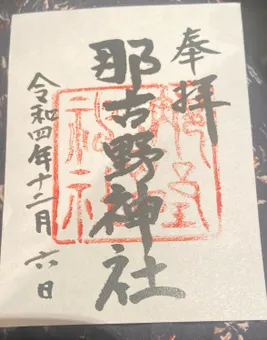 奉拝
那古野神社
令和四年十二月六日